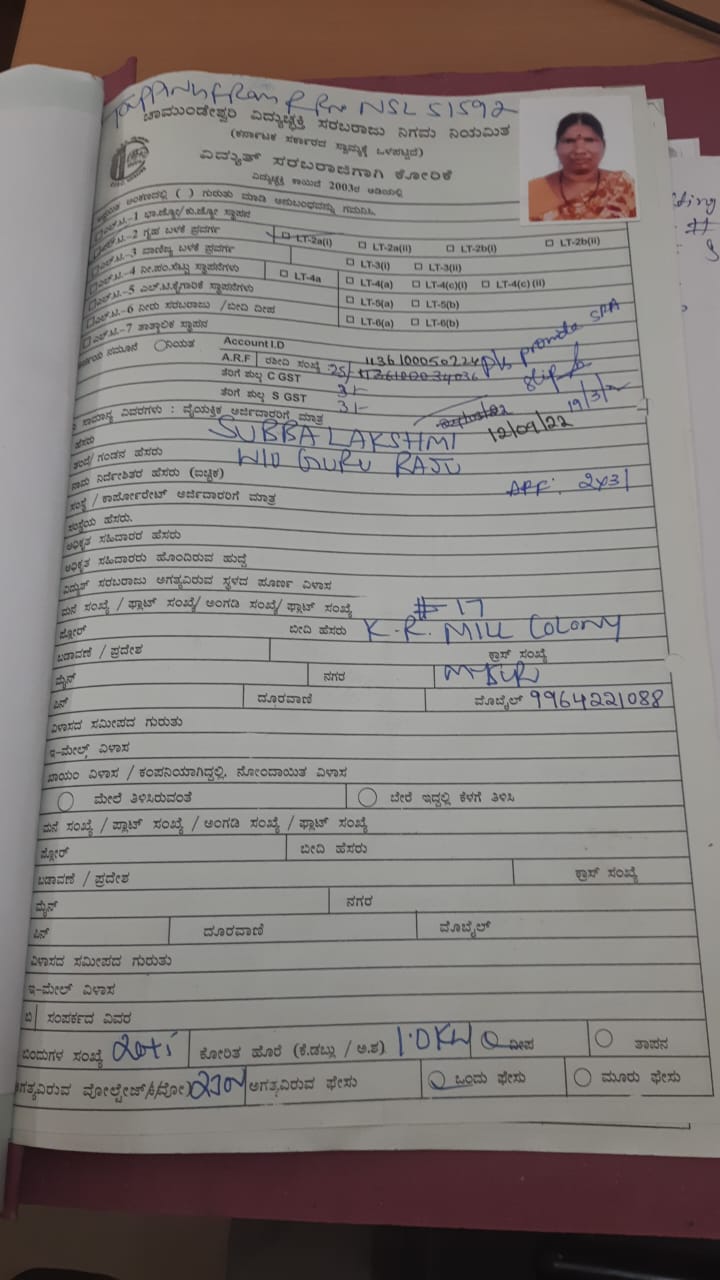 Tapping from RR No NSL 51592
ಚಾಮುಂಡೇಶ್ವರಿ ವಿದ್ಯುಚ್ಛಕ್ತಿ ಸರಬರಾಜು ನಿಗಮ ನಿಯಮಿತ
(ಕರ್ನಾಟಕ ಸರ್ಕಾರದ ಸ್ವಾಮ್ಯಕ್ಕೆ ಒಳಪಟ್ಟಿದೆ)
ವಿದ್ಯುತ್ ಸರಬರಾಜಿಗಾಗಿ ಕೋರಿಕೆ
ವಿದ್ಯುಚ್ಛಕ್ತಿ ಕಾಯಿದೆ 2003ರ ಅಡಿಯಲ್ಲಿ
ಅಂಕಣದಲ್ಲಿ ( ) ಗುರುತು ಮಾಡಿ ಅನುಬಂಧವನ್ನು ಗಮನಿಸಿ.
ಎಲ್.ಟಿ.-1 ಭಾ.ಜ್ಯೋ/ಕು.ಜ್ಯೋ ಸ್ಥಾಪನ
ಎಲ್.ಟಿ.-2 ಗೃಹ ಬಳಕೆ ಪ್ರವರ್ಗ LT-2a(i) LT-2a(ii) LT-2b(i) LT-2b(ii)
ಎಲ್.ಟಿ.-3 ವಾಣಿಜ್ಯ ಬಳಕೆ ಪ್ರವರ್ಗ LT-3(i) LT-3(ii)
ಎಲ್.ಟಿ.-4 ನೀ.ಪಂ.ಸೆಟ್ಟು ಸ್ಥಾಪನೆಗಳು LT-4a LT-4(a) LT-4(c)(i) LT-4(c) (ii)
ಎಲ್.ಟಿ.-5 ಎಲ್.ಟಿ.ಕೈಗಾರಿಕೆ ಸ್ಥಾಪನೆಗಳು LT-5(a) LT-5(b)
ಎಲ್.ಟಿ.-6 ನೀರು ಸರಬರಾಜು /ಬೀದಿ ದೀಪ LT-6(a) LT-6(b)
ಎಲ್.ಟಿ.-7 ತಾತ್ಕಾಲಿಕ ಸ್ಥಾಪನ
ನಮೂನೆ ನಿಯತ Account I.D
A.R.F ರಶೀದಿ ಸಂಖ್ಯೆ 25/ 1136100050224 pls promote SRA
ತೆರಿಗೆ ಶುಲ್ಕ C GST 3/- slip
ತೆರಿಗೆ ಶುಲ್ಕ S GST 3/- 19/3/2
ಸಾಮಾನ್ಯ ವಿವರಗಳು : ವೈಯಕ್ತಿಕ ಅರ್ಜಿದಾರರಿಗೆ ಮಾತ್ರ 12/09/22
ಹೆಸರು SUBBA LAKSHMI
ತಂದೆ/ ಗಂಡನ ಹೆಸರು W/O GURU RAJU
ನಾಮ ನಿರ್ದೇಶಿತರ ಹೆಸರು (ಐಚ್ಛಿಕ) ARF: 2431
ಸಂಸ್ಥೆ / ಕಾರ್ಪೋರೇಟ್ ಅರ್ಜಿದಾರರಿಗೆ ಮಾತ್ರ
ಸಂಸ್ಥೆಯ ಹೆಸರು.
ಅಧಿಕೃತ ಸಹಿದಾರರ ಹೆಸರು
ಅಧಿಕೃತ ಸಹಿದಾರರು ಹೊಂದಿರುವ ಹುದ್ದೆ
ವಿದ್ಯುತ್ ಸರಬರಾಜು ಅಗತ್ಯವಿರುವ ಸ್ಥಳದ ಪೂರ್ಣ ವಿಳಾಸ
ಮನೆ ಸಂಖ್ಯೆ / ಪ್ಲಾಟ್ ಸಂಖ್ಯೆ/ ಅಂಗಡಿ ಸಂಖ್ಯೆ/ ಫ್ಲಾಟ್ ಸಂಖ್ಯೆ # 17
ಫ್ಲೋರ್ ಬೀದಿ ಹೆಸರು K.R. MILL COLONY
ಬಡಾವಣೆ / ಪ್ರದೇಶ ಕ್ರಾಸ್ ಸಂಖ್ಯೆ
ಮೈನ್ ನಗರ
ಪಿನ್ ದೂರವಾಣಿ ಮೊಬೈಲ್ 9964221088
ವಿಳಾಸದ ಸಮೀಪದ ಗುರುತು
ಇ-ಮೇಲ್ ವಿಳಾಸ
ಖಾಯಂ ವಿಳಾಸ / ಕಂಪನಿಯಾಗಿದ್ದಲ್ಲಿ, ನೋಂದಾಯಿತ ವಿಳಾಸ
ಮೇಲೆ ತಿಳಿಸಿರುವಂತೆ ಬೇರೆ ಇದ್ದಲ್ಲಿ ಕೆಳಗೆ ತಿಳಿಸಿ
ಮನೆ ಸಂಖ್ಯೆ / ಪ್ಲಾಟ್ ಸಂಖ್ಯೆ / ಅಂಗಡಿ ಸಂಖ್ಯೆ / ಫ್ಲಾಟ್ ಸಂಖ್ಯೆ
ಫ್ಲೋರ್ ಬೀದಿ ಹೆಸರು
ಬಡಾವಣೆ / ಪ್ರದೇಶ ಕ್ರಾಸ್ ಸಂಖ್ಯೆ
ಮೈನ್ ನಗರ
ಪಿನ್ ದೂರವಾಣಿ ಮೊಬೈಲ್
ವಿಳಾಸದ ಸಮೀಪದ ಗುರುತು
ಇ-ಮೇಲ್ ವಿಳಾಸ
ಬಿ ಸಂಪರ್ಕದ ವಿವರ
ಬಿಂದುಗಳ ಸಂಖ್ಯೆ 20+1 ಕೋರಿತ ಹೊರೆ (ಕೆ.ಡಬ್ಲು / ಅ.ಶ) 1.0KW ದೀಪ ತಾಪನ
ಅಗತ್ಯವಿರುವ ವೋಲ್ಟೇಜ್ 230V ಅಗತ್ಯವಿರುವ ಫೇಸು ಒಂದು ಫೇಸು ಮೂರು ಫೇಸು